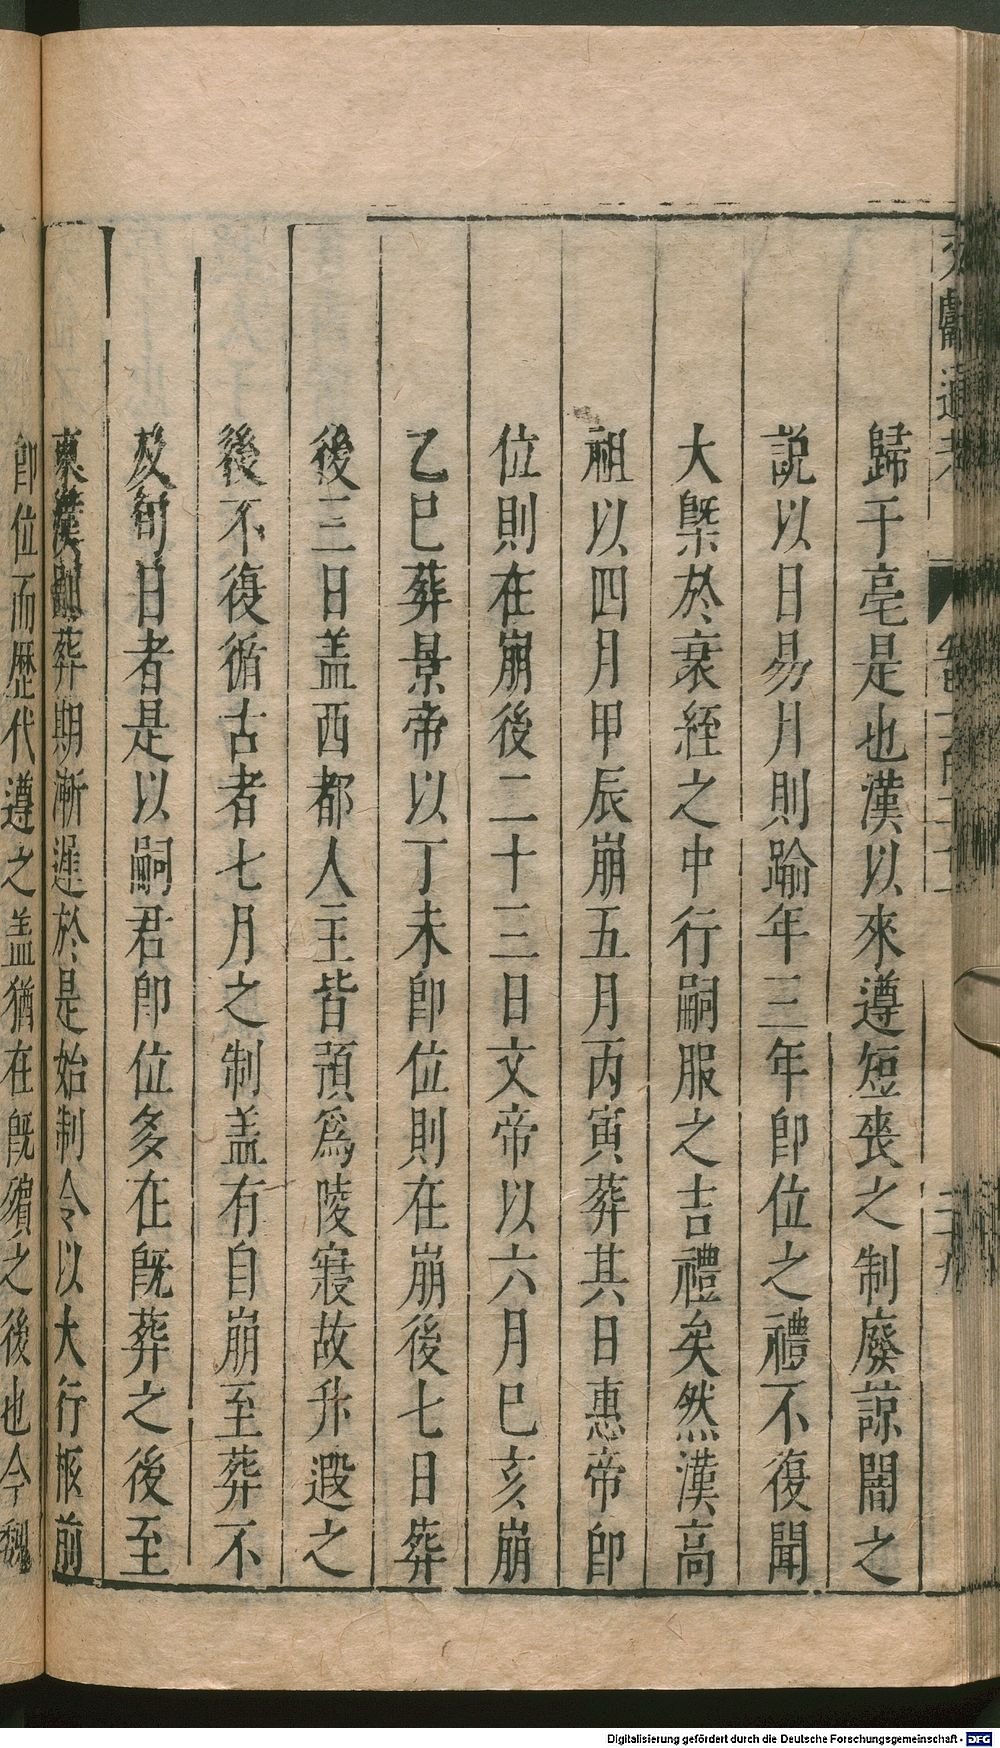 文獻通考
歸于亳是也漢以來遵短喪之制廢諒闇之
説以日易月則踰年三年卽位之禮不復聞
大槩於衰絰之中行嗣服之吉禮矣然漢高
祖以四月甲辰崩五月丙寅葬其日惠帝卽
位則在崩後二十三日文帝以六月巳亥崩
乙巳葬景帝以丁未卽位則在崩後七日葬
後三日盖西都人主皆預爲陵寢故升遐之
後不復循古者七月之制盖有自崩至葬不
及旬日者是以嗣君卽位多在旣葬之後至
東漢則葬期漸遲於是始制令以大行柩前
卽位而歷代遵之盖猶在旣殯之後也今
Digitalisierung gefördert durch die Deutsche Forschungsgemeinschaft - DFG